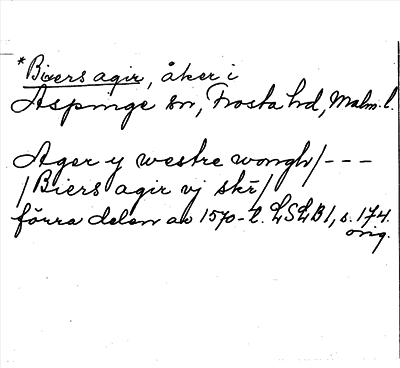 *Biers agir, åker i
Aspinge sn, Frosta hd, Malm.l.
Ager y westre wongh/---
/Biers agir vj skr̄/
förra delen av 1570-t. LSLB 1, s. 174.
orig.